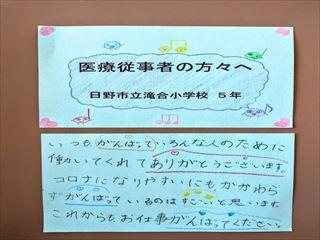 医療従事者の方々へ
日野市立滝合小学校 5年
いつもがんばっていろんな人のために
働いてくれてありがとうございます。
コロナになりやすいにもかかわら
ずがんばっているのはすごいと思います。
これからもお仕事がんばってください。